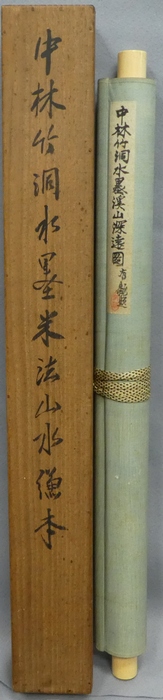 中林竹洞水墨米法山水
中林竹洞水墨溪山深遠図